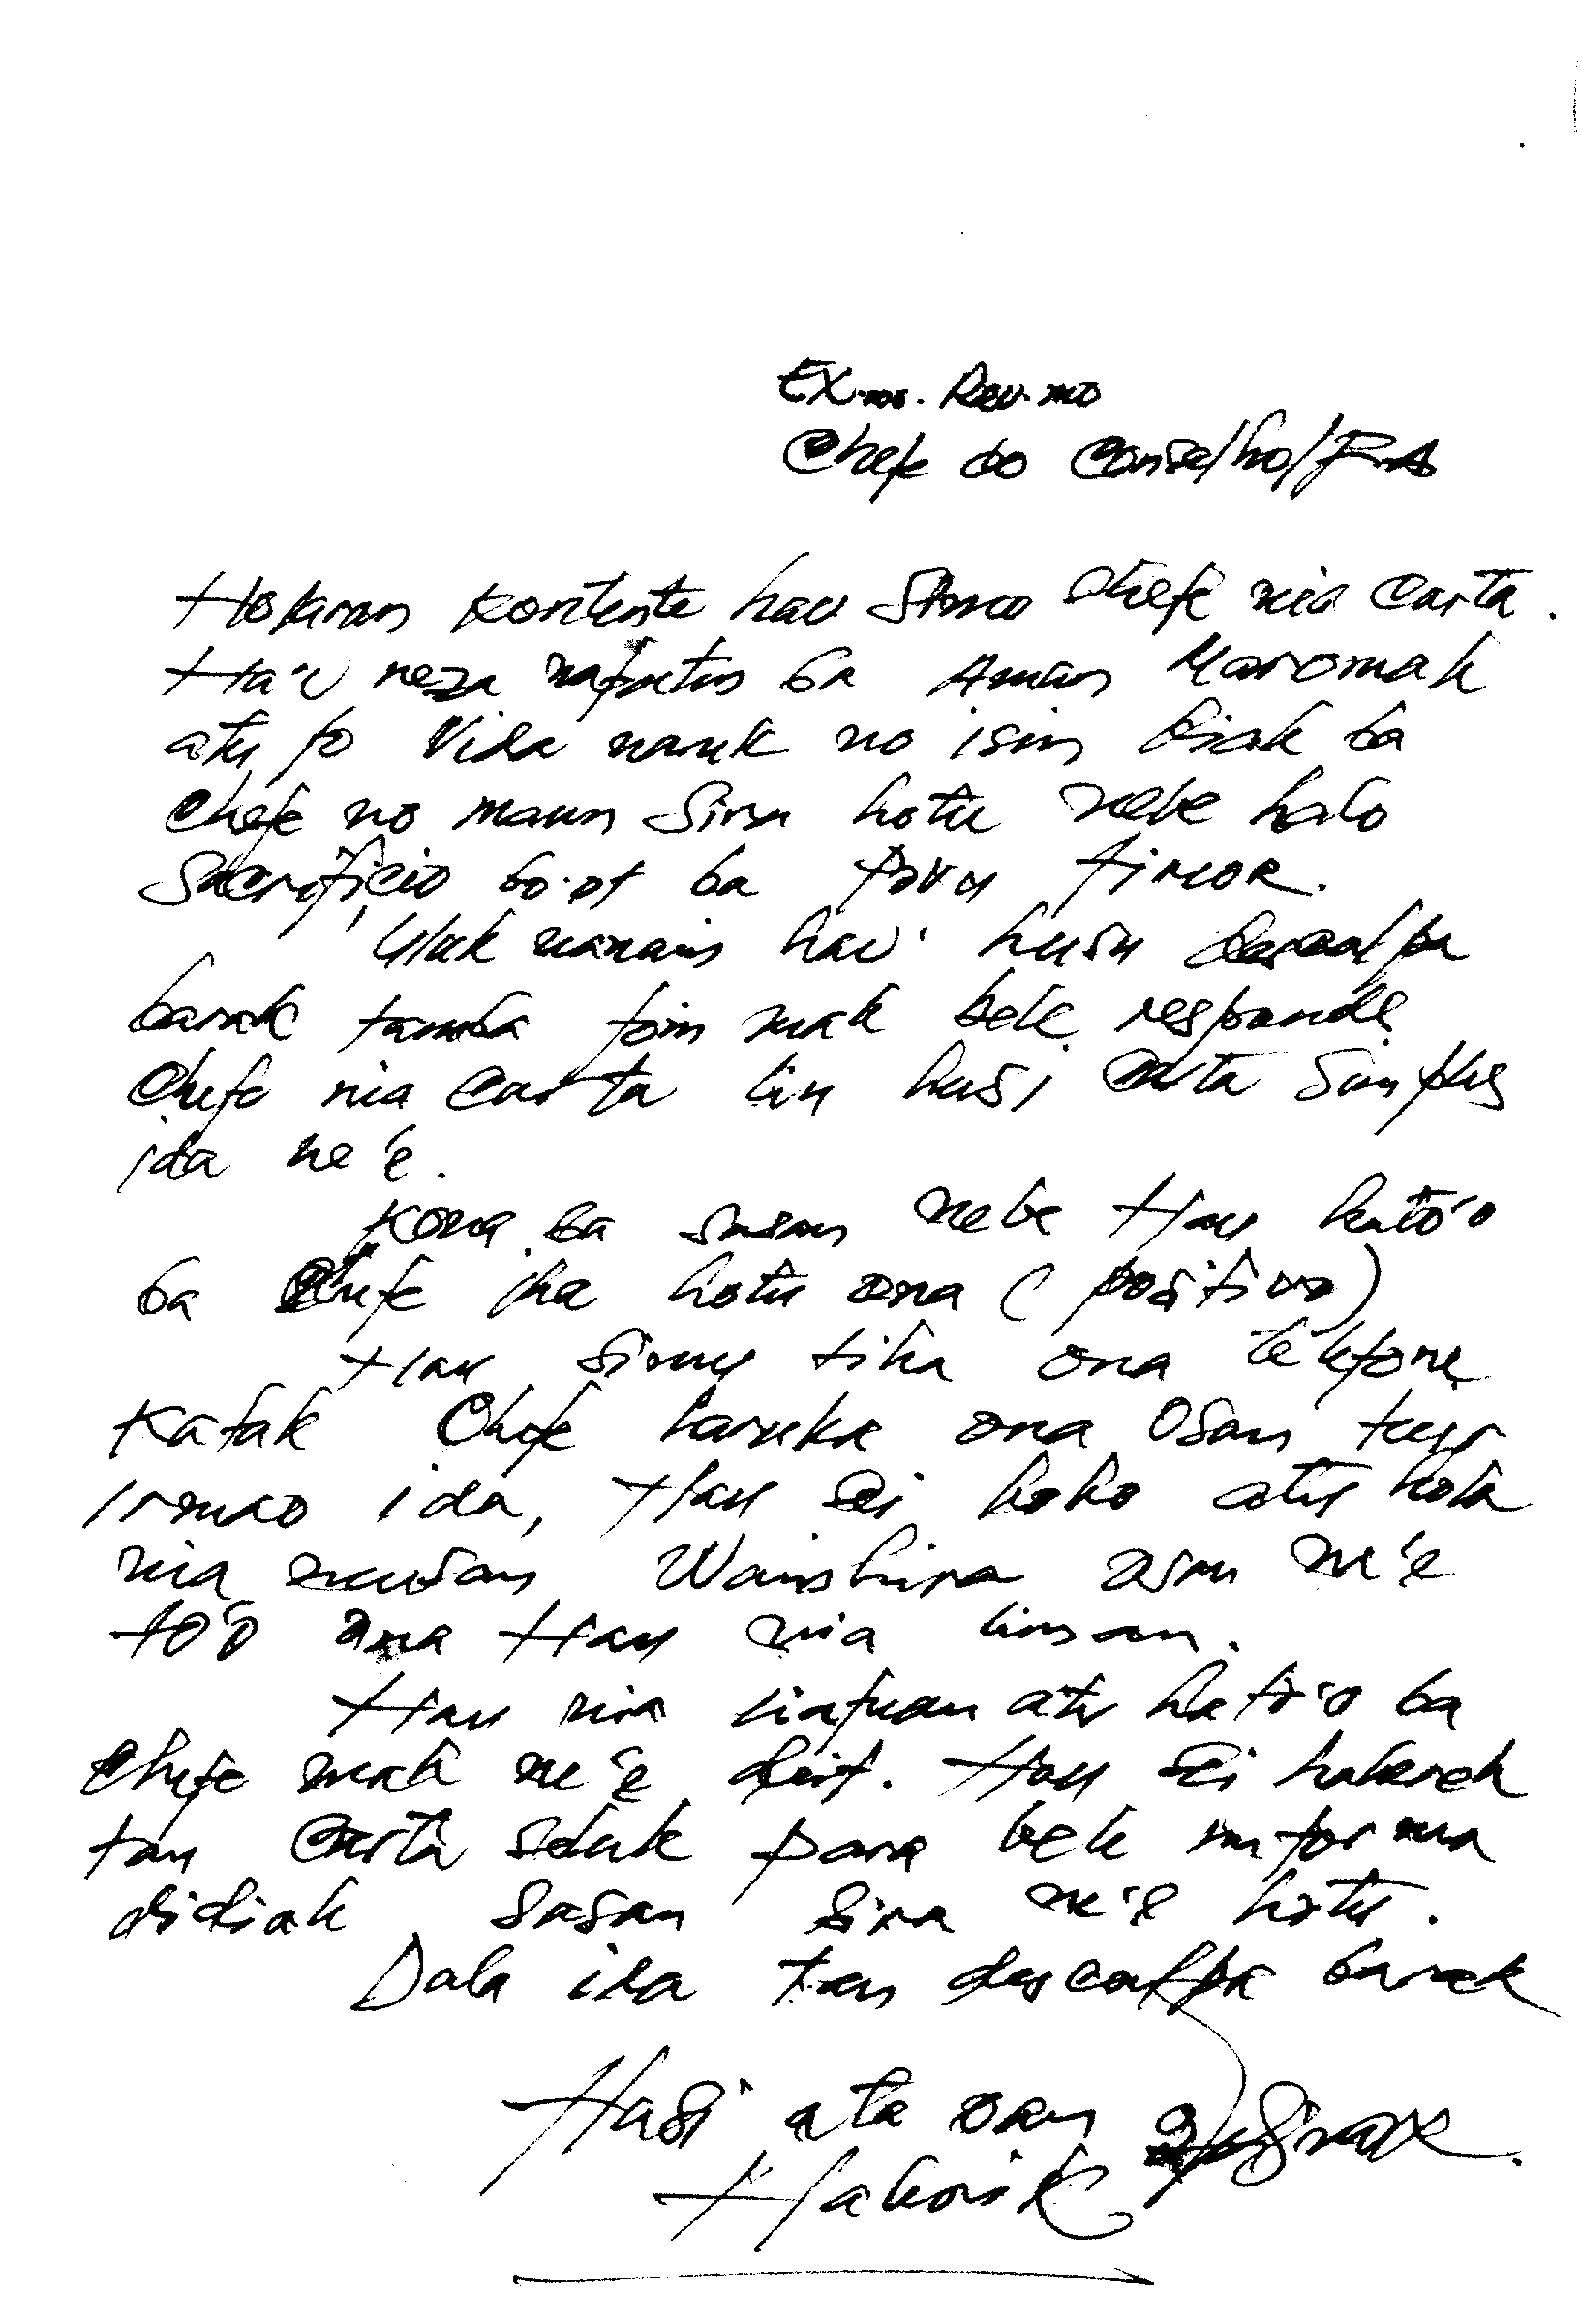 Ex.mo. Rev.mo
Chefe do Conselho/FA
Hokran kontente hau simo chefe nia carta.
Ha'u reza nafatin ba Aman Maromak
atu fo vida naruk no isin diak ba
Chefe no maun sira hotu nebe halo
Sacrificio bo'ot ba povu timor.
Uluk nanain hau' husu desculpa
barak tamba foin mak bele responde
Chefe nia carta liu husi carta simples
ida ne'e.
Kona ba sasan nebe Hau hato'o
ba Chefe iha hotu ona (positivo)
Hau simu tiha ona telefone
Katak Chefe haruka ona osan tuir
irmao ida, Hau sei koko atu hola
nia nusan Wainhira osan ne'e
to'o ona Hau nia liman.
Hau nia liafuan atu hato'o ba
Chefe mak ne'e deit. Hau sei hakerek
tan carta seluk para bele informa
didiak sasan sira ne'e hotu.
Dala ida tan desculpa barak
Husi ata oan
Hakorik